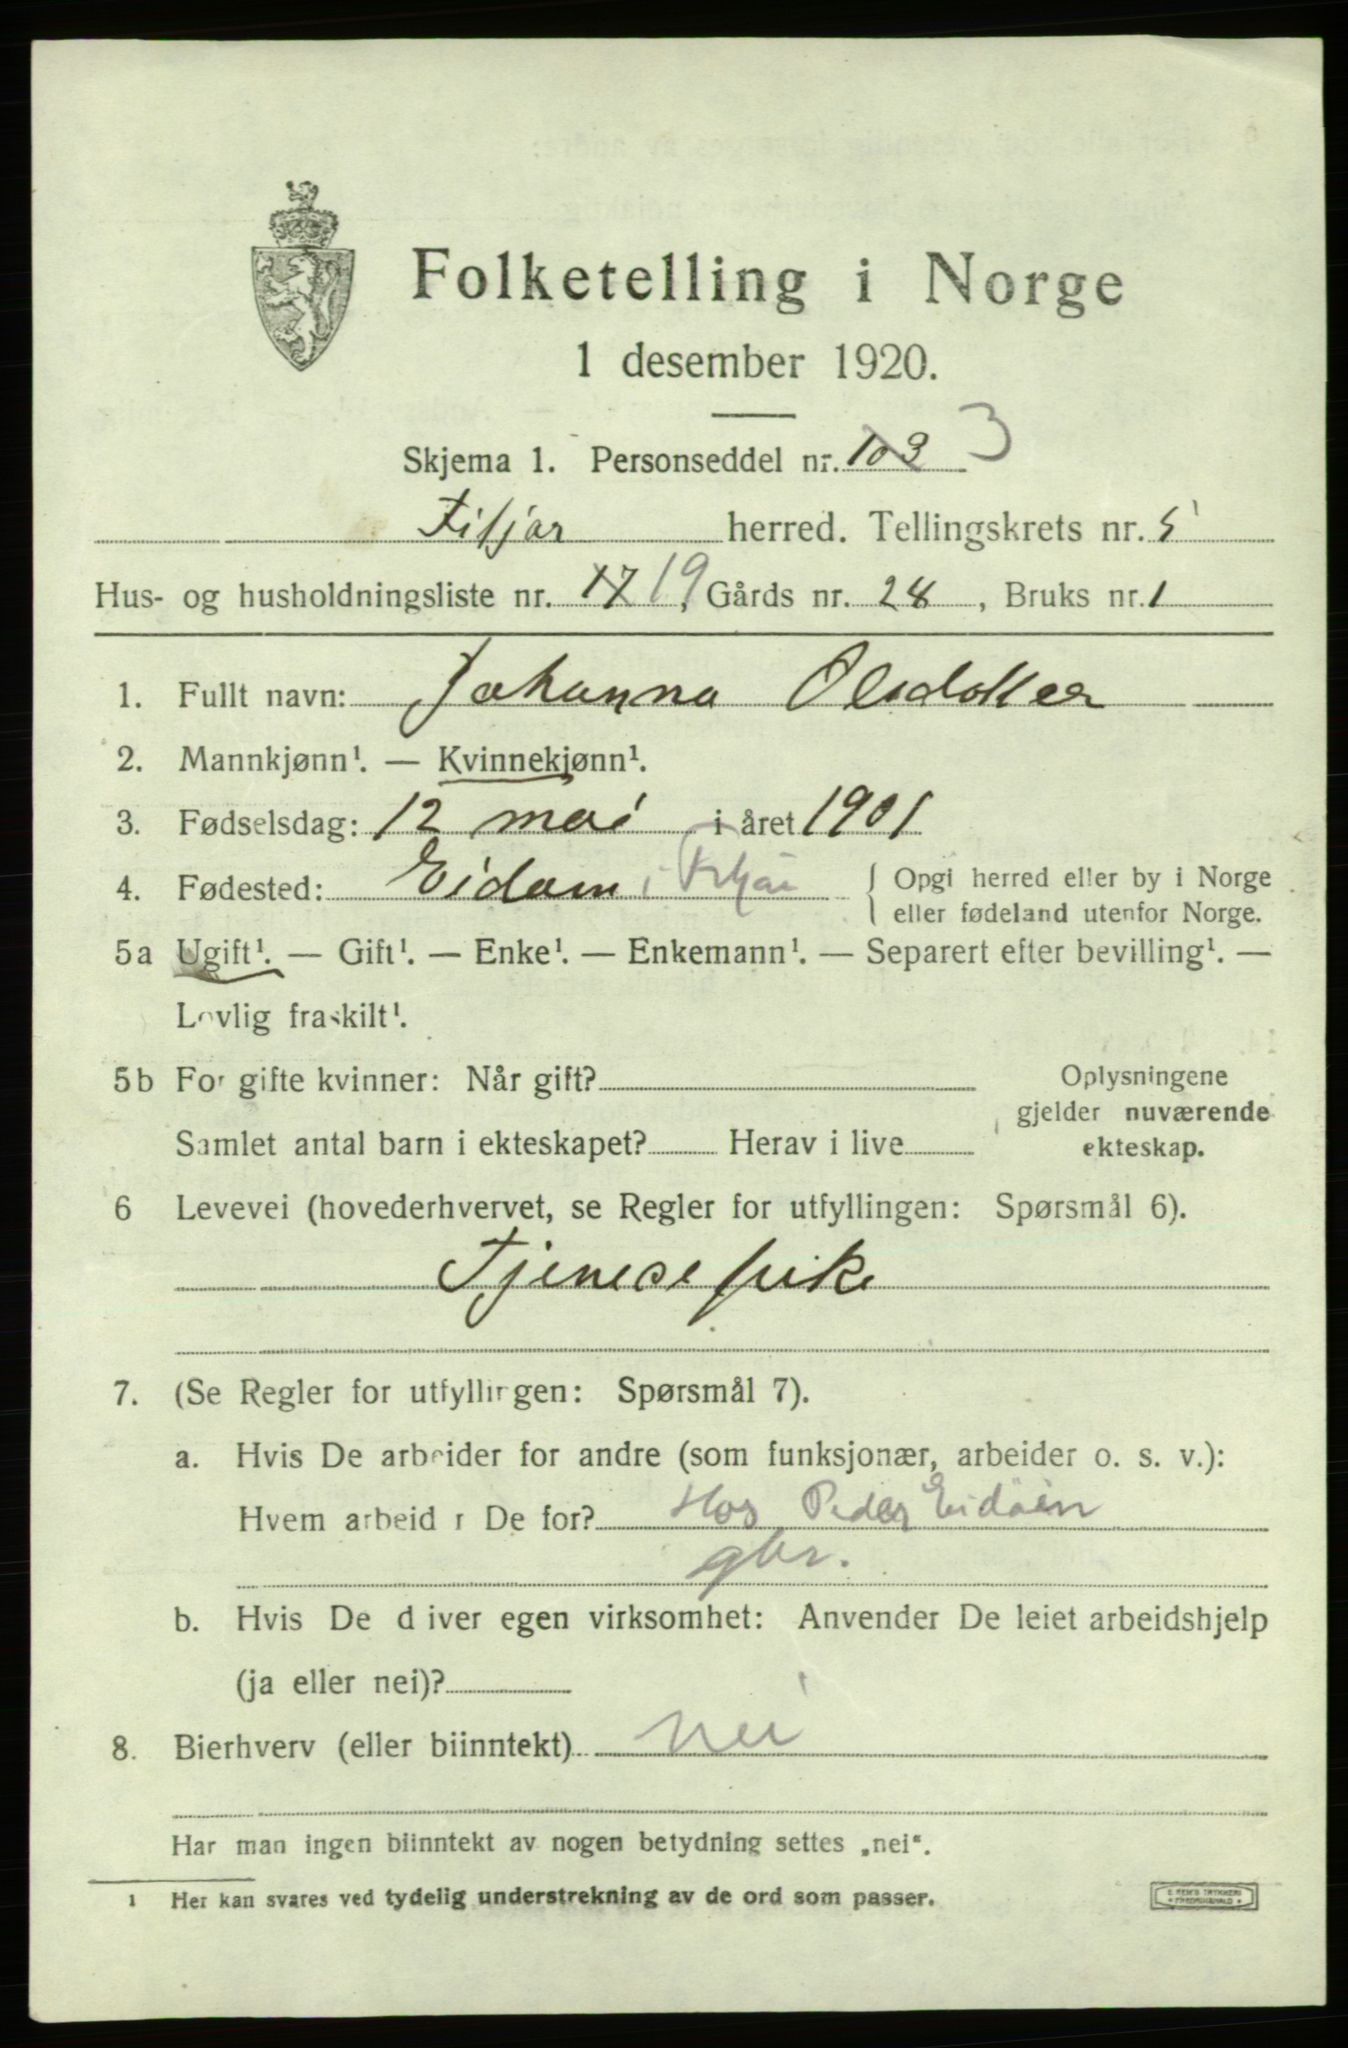 Folketelling i Norge
1 desember 1920.
Skjema 1. Personseddel nr. 103 3
Fitjar herred. Tellingskrets nr. 5
Hus- og husholdningsliste nr. 17 19, Gårds nr. 28, Bruks nr. 1
1. Fullt navn: Johanna Olsdotter
2. Mannkjønn¹. — Kvinnekjønn¹.
3. Fødselsdag: 12 mai i året 1901
4. Fødested: i Fitjar { Opgi herred eller by i Norge
eller fødeland utenfor Norge.
5a Ugift¹. — Gift¹. — Enke¹. — Enkemann¹. — Separert efter bevilling¹. —
Lovlig fraskilt¹.
5b For gifte kvinner: Når gift? Oplysningene
gjelder nuværende
Samlet antal barn i ekteskapet? Herav i live ekteskap.
6 Levevei (hovederhvervet, se Regler for utfyllingen: Spørsmål 6).
Tjenesepike
7. (Se Regler for utfyllingen: Spørsmål 7).
a. Hvis De arbeider for andre (som funksjonær, arbeider o. s. v.):
Hvem arbeid r De for? Hos Peder Eidøen
gbr.
b. Hvis De d iver egen virksomhet: Anvender De leiet arbeidshjelp
(ja eller nei)?
8. Bierhverv (eller biinntekt) nei
Har man ingen biinntekt av nogen betydning settes „nei“.
1 Her kan svares ved tydelig understrekning av de ord som passer.